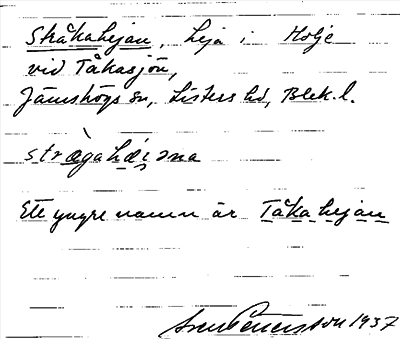 Stråkahejan, heja i Holje
vid Tåkasjön,
Jämshögs sn, Listers hd, Blek. l.
stræ̀gahæi̯ǝna
Ett yngre namn är Tåkahejan
Sven Petersson 1937